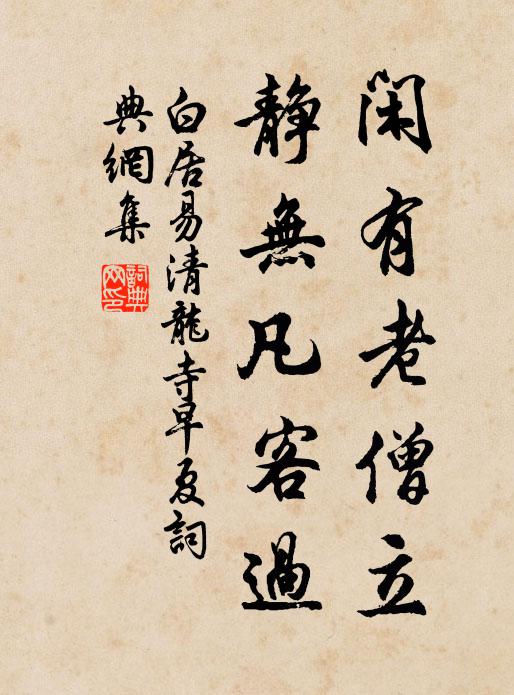 閑有老僧立
静無凡客過
白居易清龍寺早夏詞
典網集
詞典網印